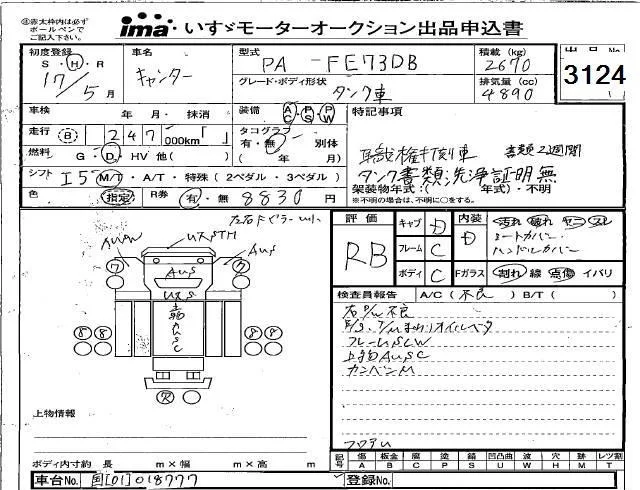 ④赤太枠内は必ず
ボールペンで
ご記入下さい。
ima いすゞモーターオークション出品申込書
初度登録 車名 型式 積載 (kg) 出品No.
S・H・R キャンター PA - FE73DB 2670 3124
17/5月 グレード・ボディ形状 排気量 (cc)
タンク車 4890
車検 年 月・抹消 装備 AC・PS・PW 特記事項
走行 B 247 000km「 」 タコグラフ 有・無 別体
( 年 月)
職権打刻車 書類2週間
燃料 G・D・HV 他( )
タンク書類・洗浄証明無
シフト I 5 M/T・A/T・特殊 (2ペダル・3ペダル)
架装物年式:( 年式)・不明
※不明の場合は、不明に○をする。
色 指定 R券 有・無 8830円
評価 RB
キャブ D 内装 D 汚れ 破れ ヤニ スレ
シートカバー
ハンドルカバー
フレーム C
ボディ C Fガラス 割れ 線 点傷 イバリ
検査員報告 A/C(不良) B/T( )
フレームSCW
上物AUSC
フロアU
上物情報
ボディ内寸約 長 m×幅 m×高 m
記号 傷 板金 腐 塗 錆 凹凸曲 波 穴 跡 レツ割
A B C P S U W H M T
車台No. 国[01]018777 登録No.